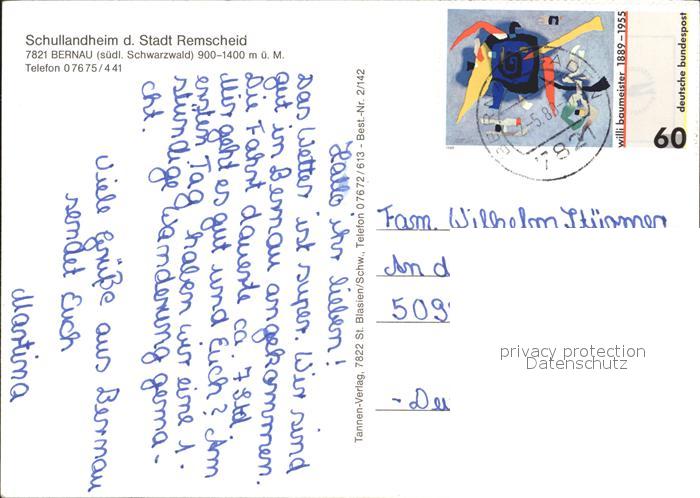 Schullandheim d. Stadt Remscheid
7821 BERNAU (südl. Schwarzwald) 900–1400 m ü. M.
Telefon 07675/441
Hallo ihr lieben!
Das Wetter ist super. Wir sind
gut in Bernau angekommen.
Die Fahrt dauerte ca 7 Std
Mir geht es gut und Euch? Am
ersten Tag haben wir eine 1.
stündige Wanderung gema-
cht.
Viele Grüße aus Bernau
sendet Euch
Martina
Tannen-Verlag, 7822 St. Blasien/Schw., Telefon 07672/613 - Best.-Nr. 2/142
willi baumeister 1889–1955
deutsche bundespost
60
BERNAU
7821
Fam. Wilhelm Stürmer
An d
509
- De
privacy protection
Datenschutz